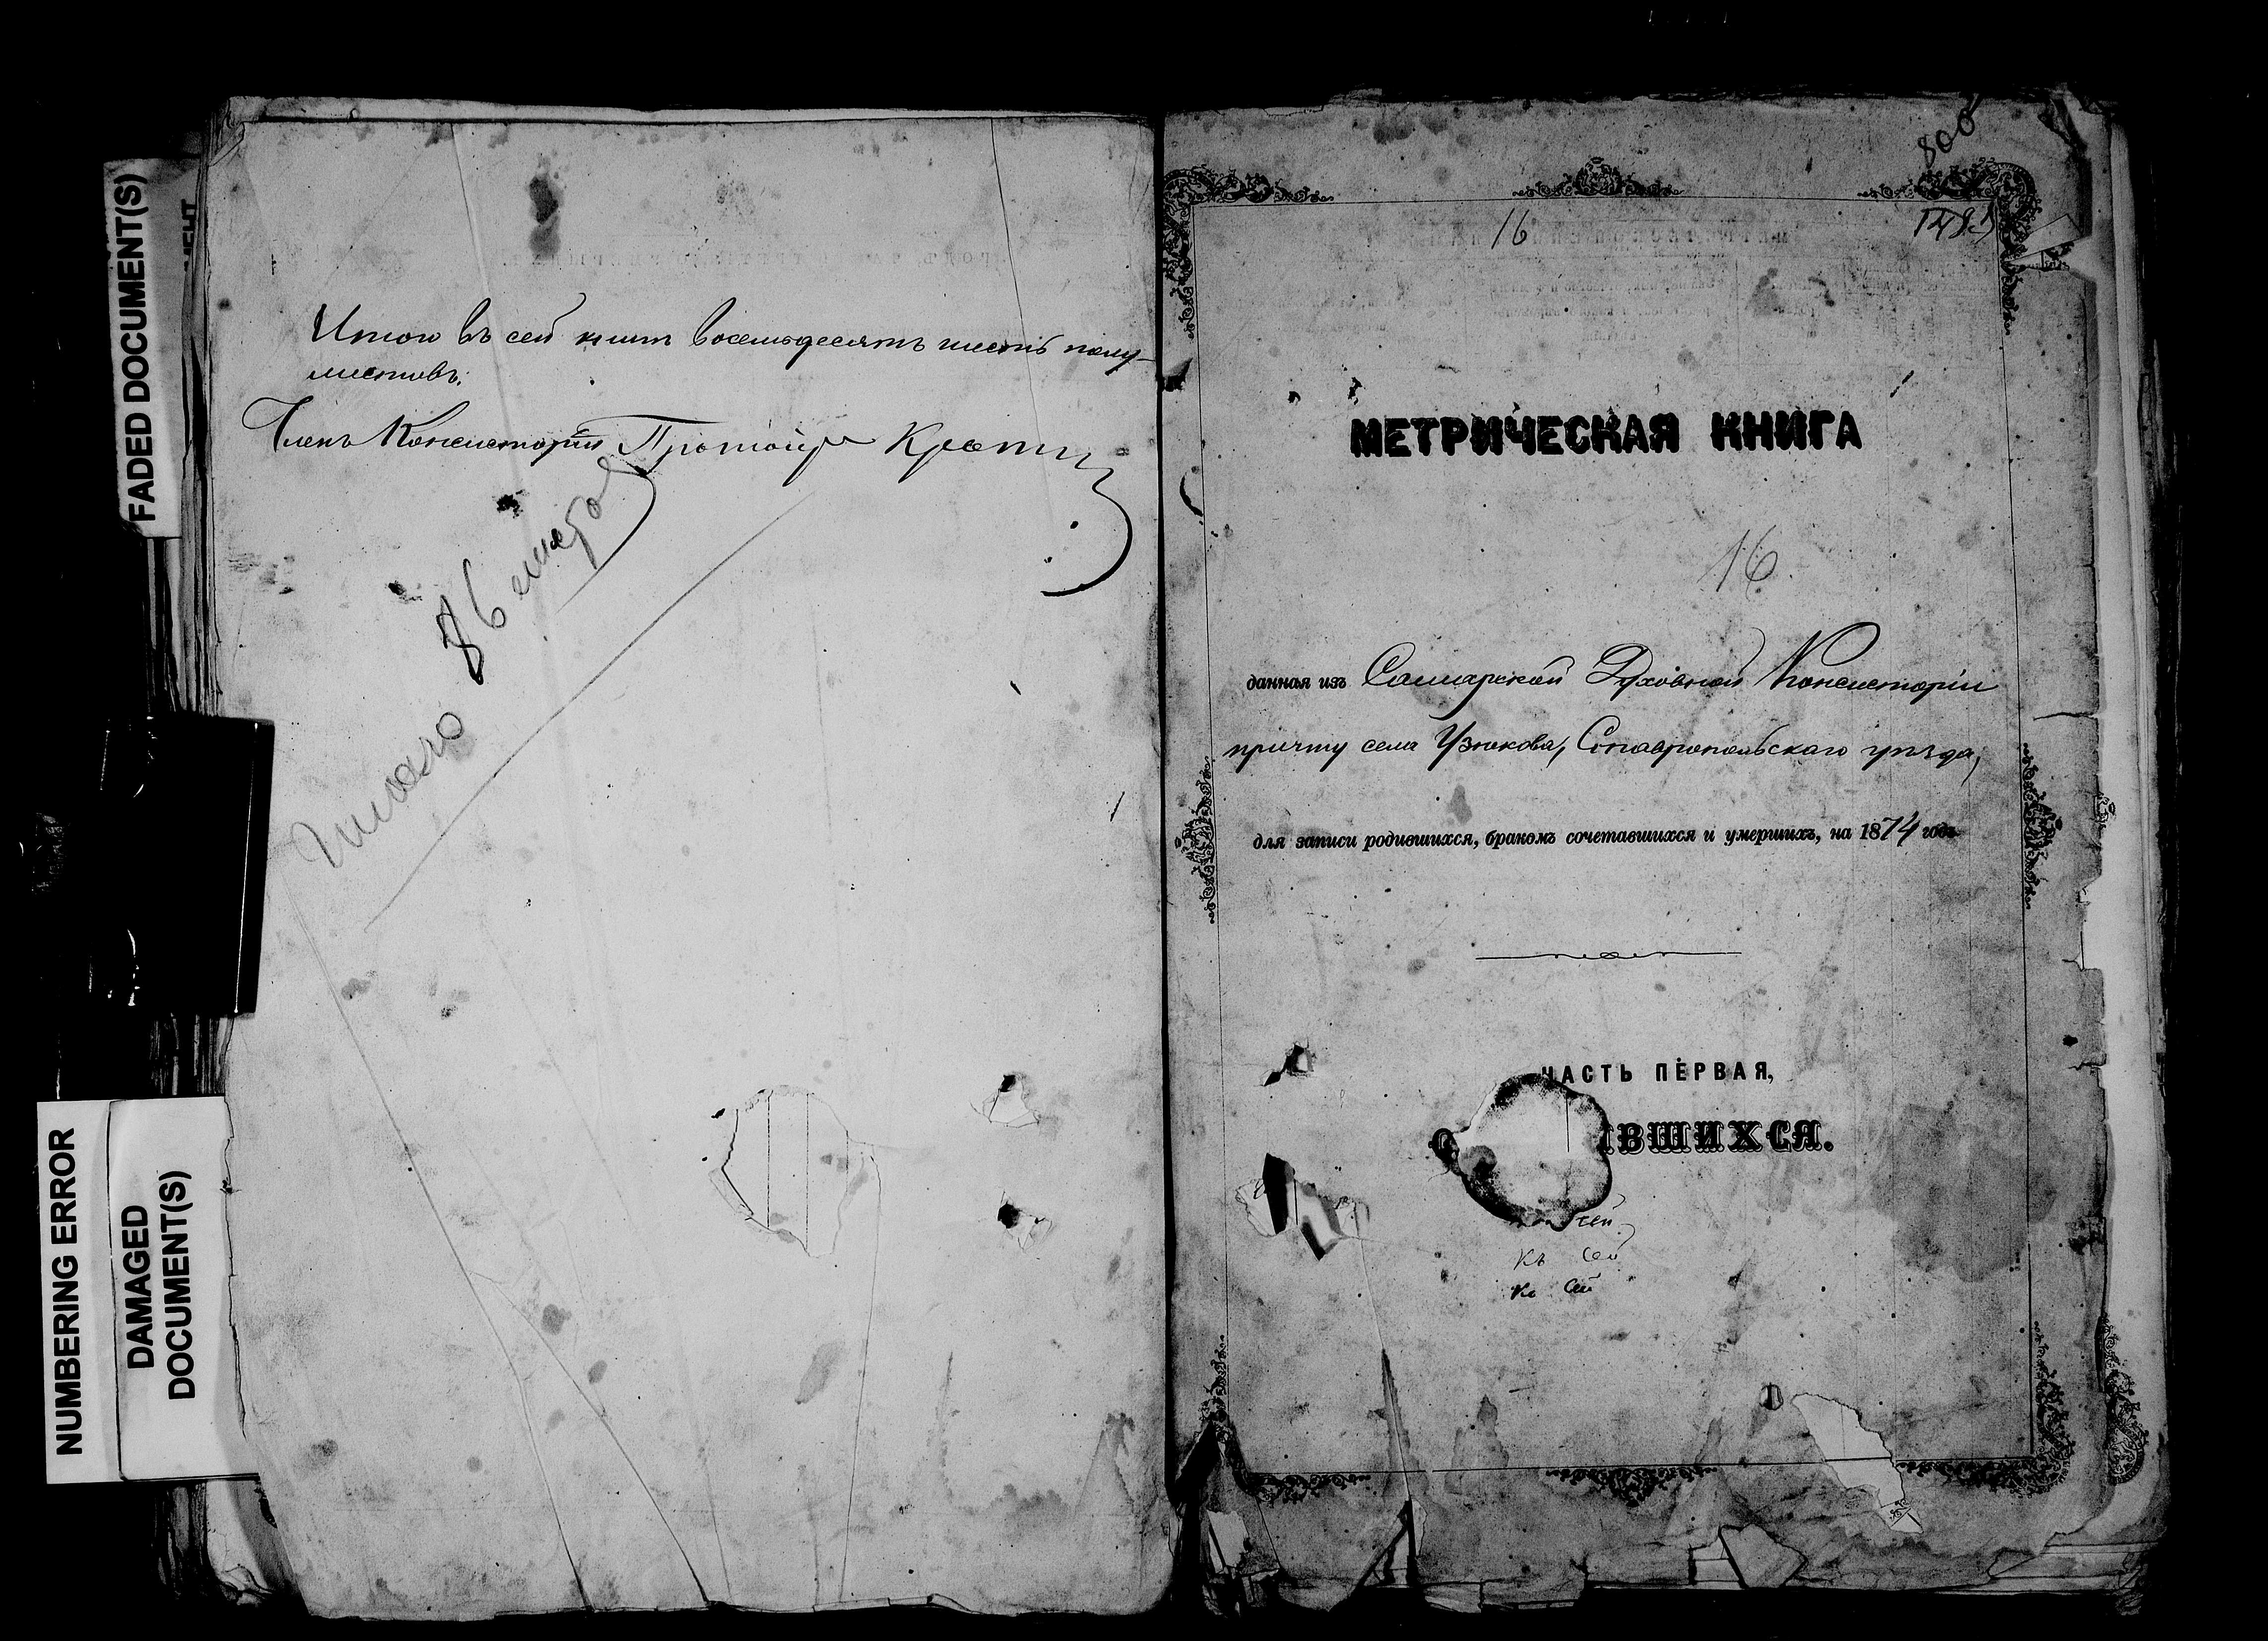 FADED DOCUMENT(S)
NUMBERING ERROR
DAMAGED
DOCUMENT(S)
Итого въ сей книгѣ восемьдесятъ шесть полу-
листовъ.
Членъ Консисторіи Протоіерей
Итого 86
800
16
МЕТРИЧЕСКАЯ КНИГА
16.
данная изъ Самарской Духовной Консисторіи
причту села Узюкова, Ставропольскаго уѣзда,
для записи родившихся, бракомъ сочетавшихся и умершихъ, на 1874 годъ
ЧАСТЬ ПЕРВАЯ,
ВШИХСЯ.
сей
къ сей
ко сей